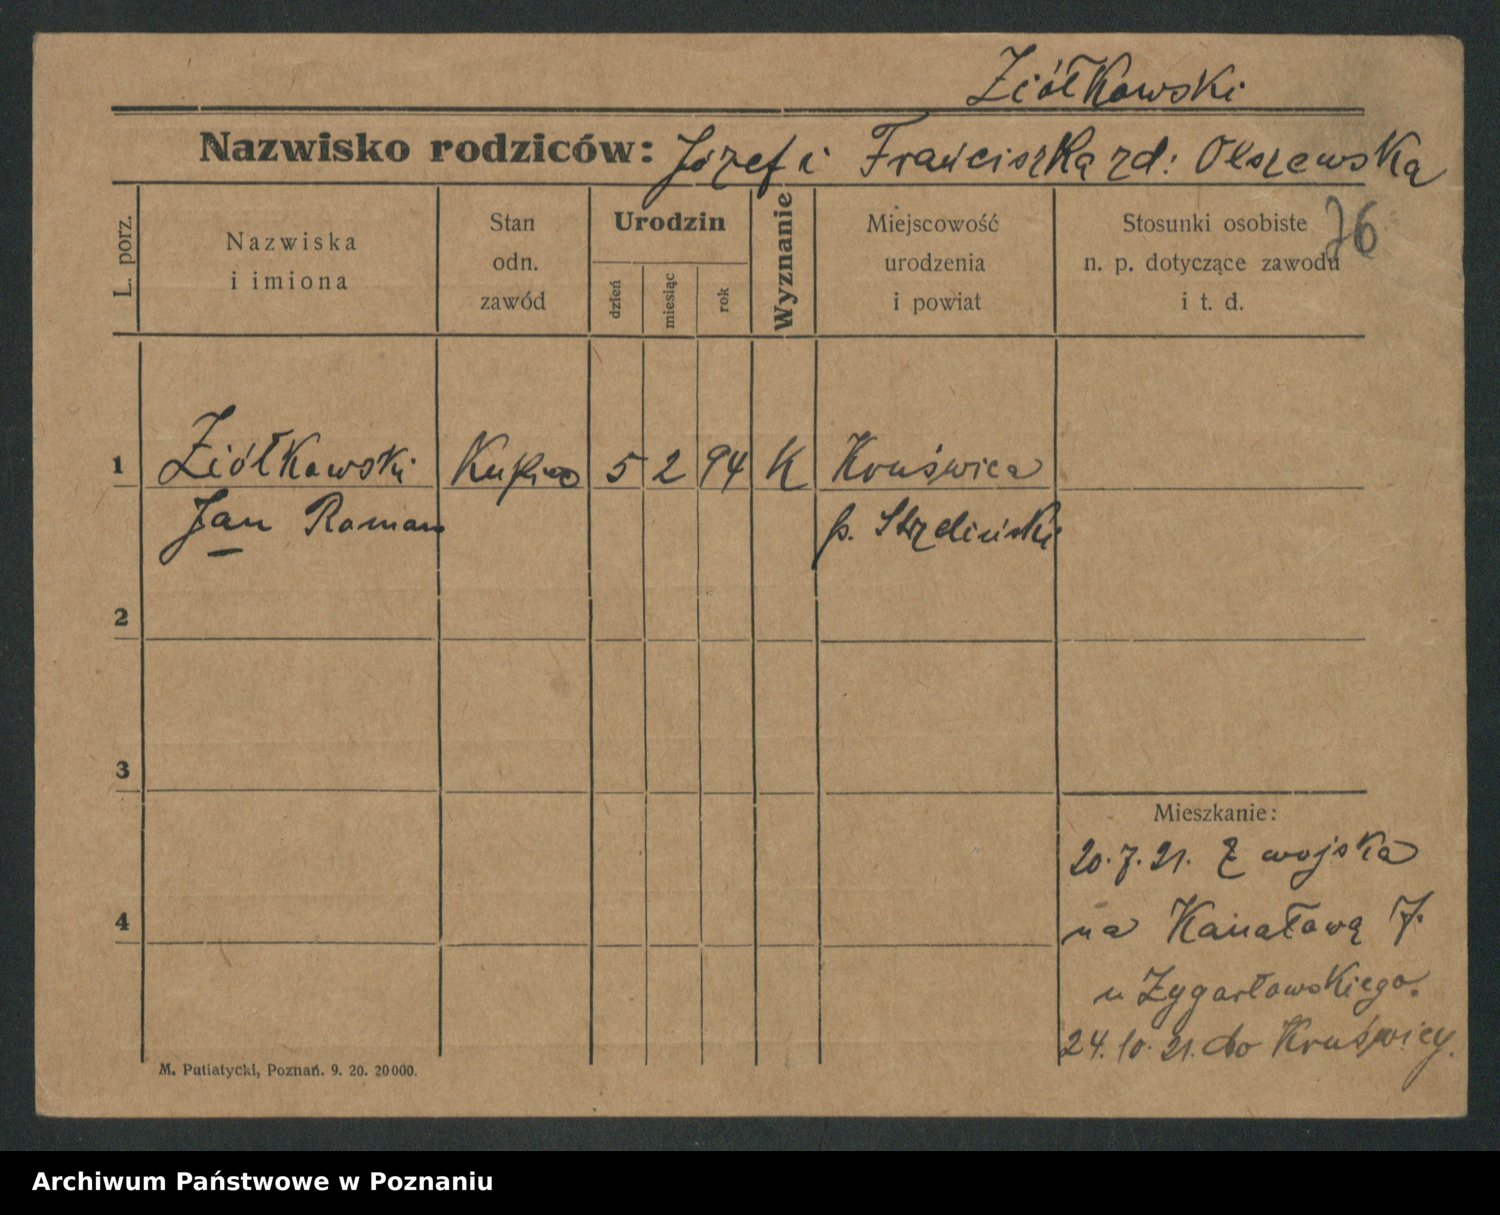 Ziółkowski
Nazwisko rodziców: Józef i Franciszka zd: Olszewska
L. porz.
Nazwiska
i imiona
Stan
odn.
zawód
Urodzin
dzień
miesiąc
rok
Wyznanie
Miejscowość
urodzenia
i powiat
Stosunki osobiste
n. p. dotyczące zawodu
i t. d.
76
1 Ziółkowski Kupiec 5 2 94 K Kruświca
Jan Roman p. Strzeliński
2
3
Mieszkanie:
20.7.21. Z wojska
4 na Kanałową 7.
u Zygarłowskiego.
24.10.21. do Kruświcy.
M. Putiatycki, Poznań. 9. 20. 20000.
Archiwum Państwowe w Poznaniu